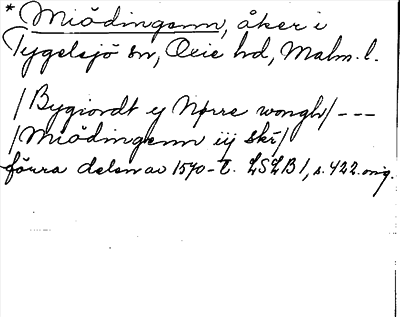 * Miödingenn, åker i
Tygelsjö sn, Oxie hd, Malm. l.
/Bygiordt ej Nørre wongh/ ---
/Miödingenn iij skr/
förra delen av 1570-t. LSLB 1, s. 422. orig.